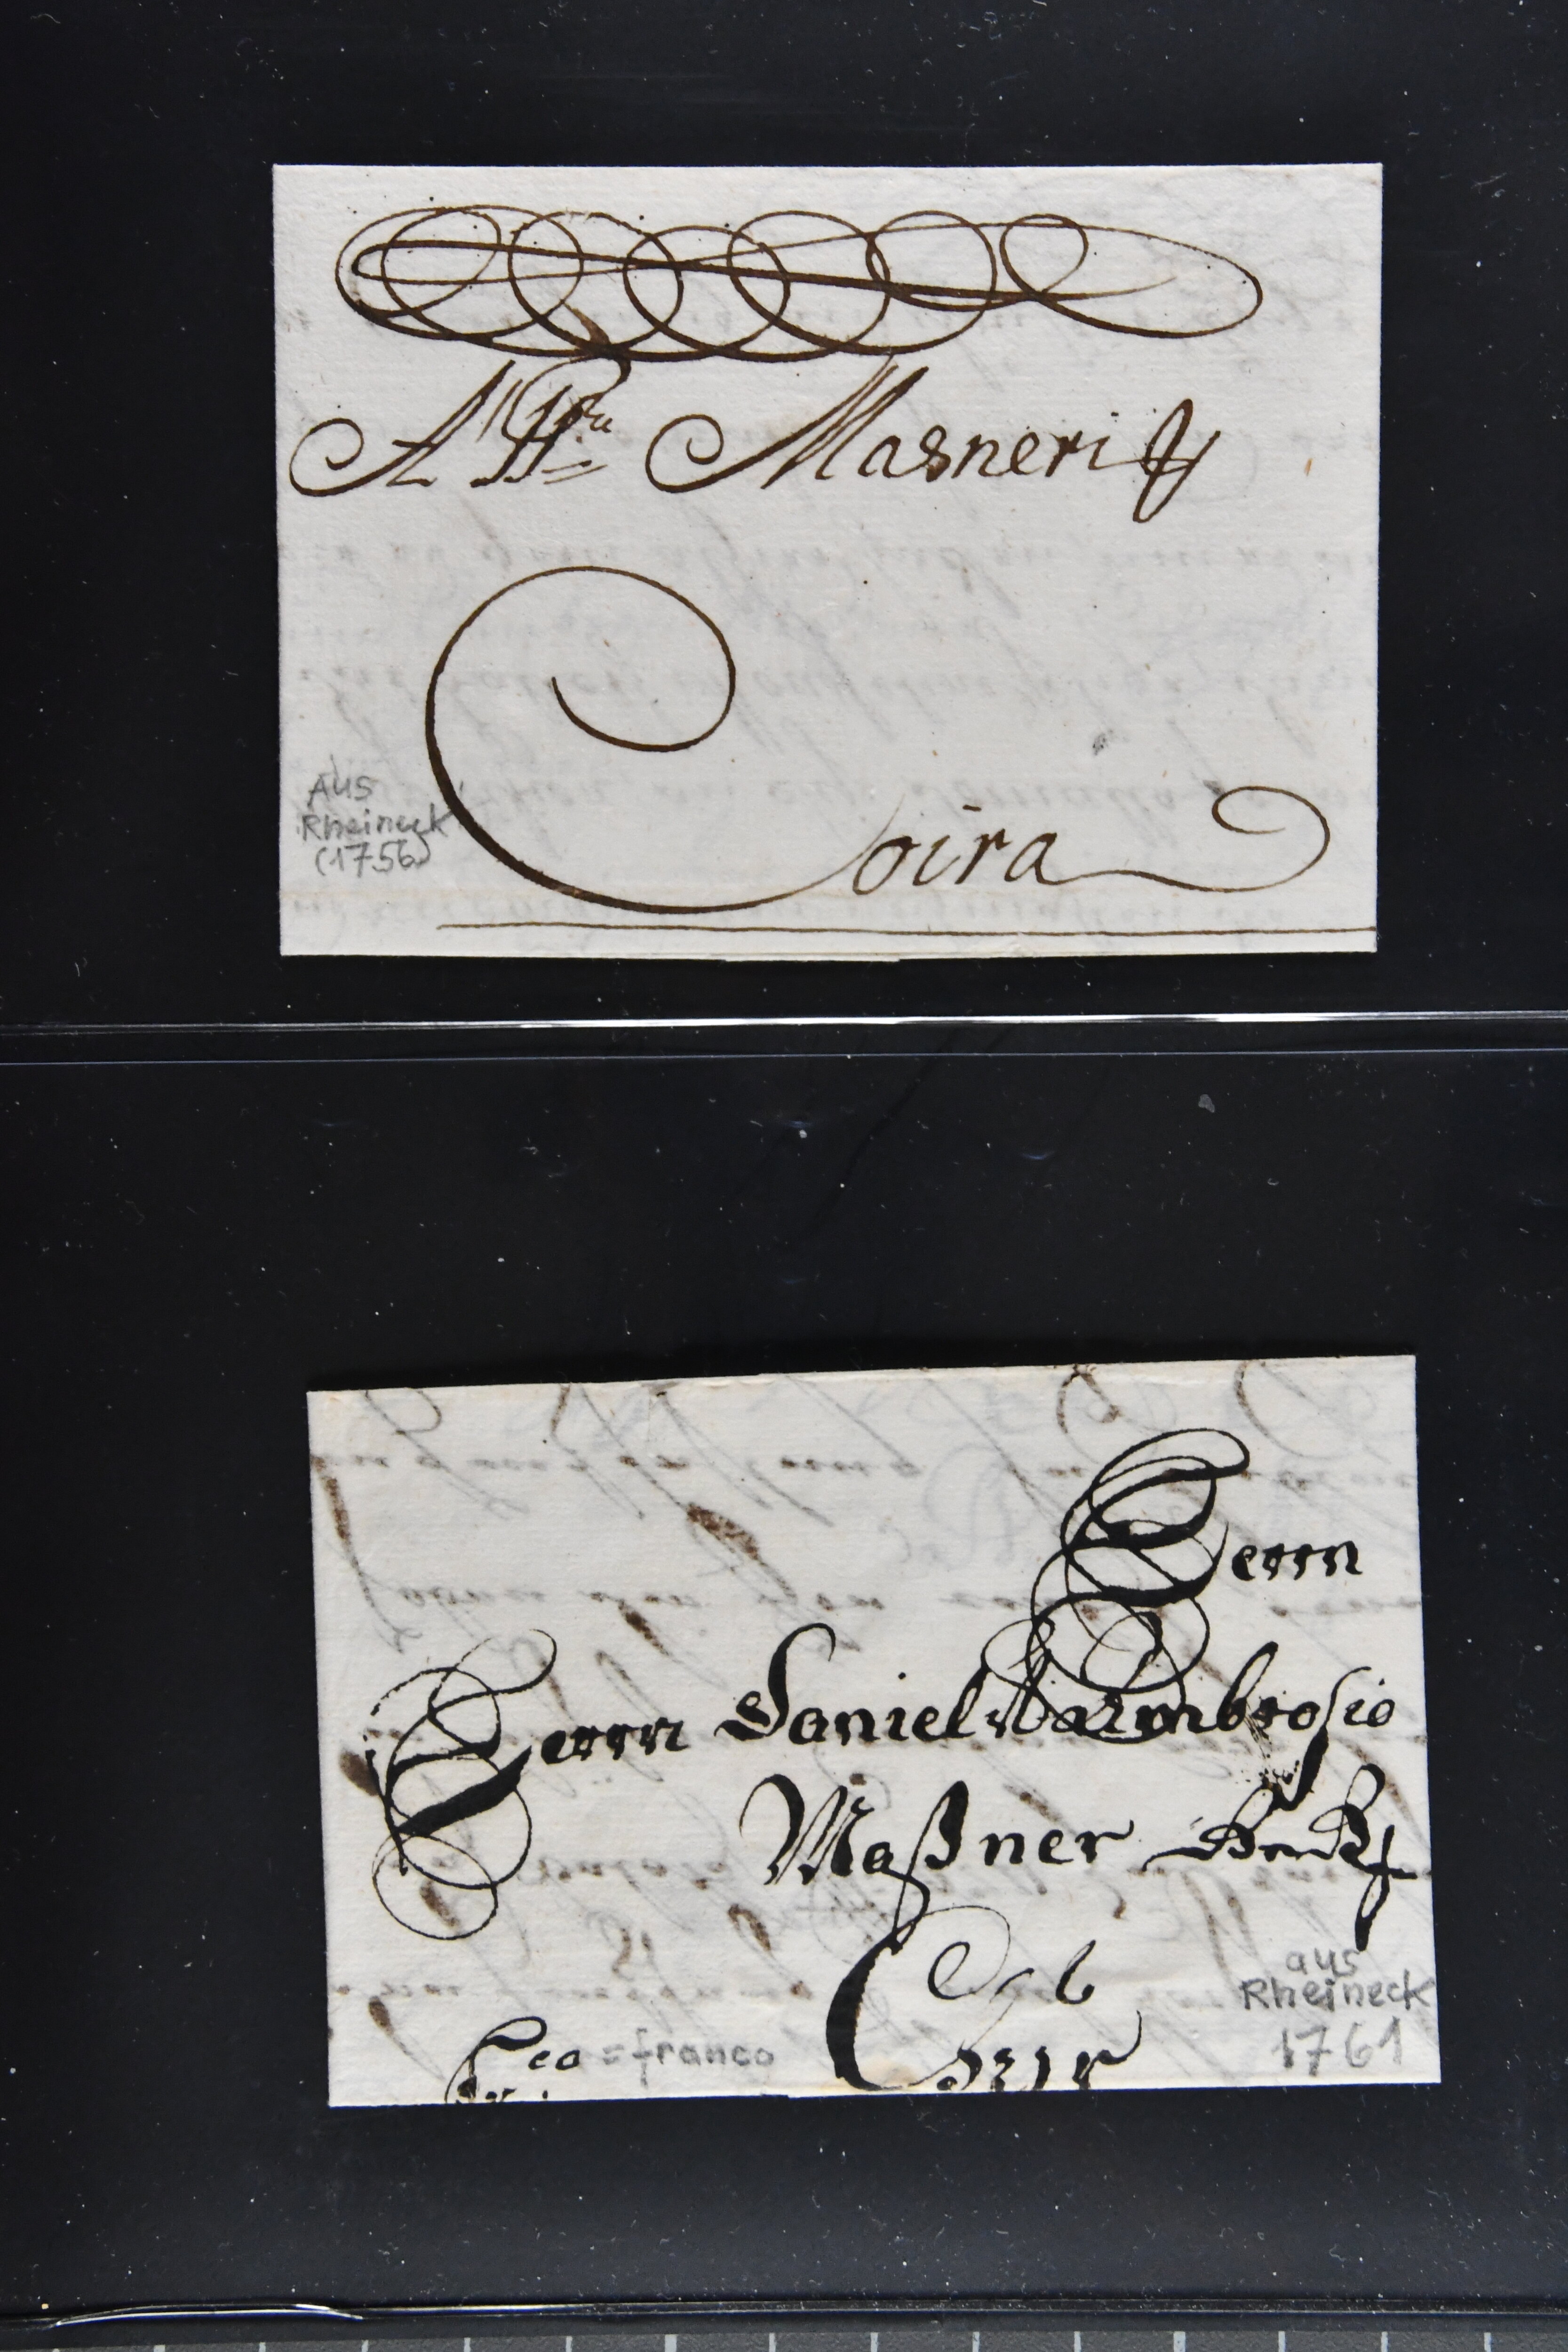 Masneri
Coira
Aus
Rheineck
(1756)
Herrn
Herrn Daniel Ambrosio
Maßner
Chur
aus
Rheineck
1761
fco = franco